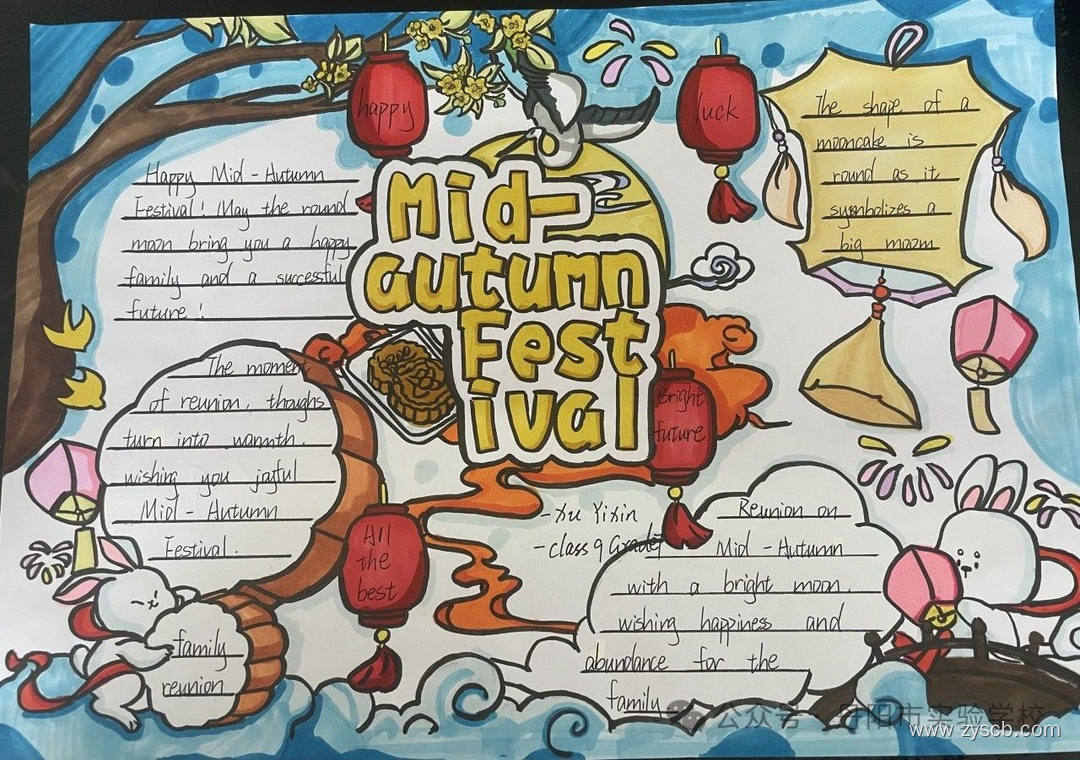 happy
luck
The shape of a
mooncake is
round as it
symbolizes a
big moom
Happy Mid-Autumn
Festival! May the round
moon bring you a happy
family and a successful
future!
Mid-
autumn
Fest
ival
The momen
of reunion, thoughs
turn into warmth.
wishing you joyful
Mid-Autumn
Festival.
Bright
future
All
the
best
-Xu Yixin
-class 9 Grade7
Reunion on
Mid-Autumn
with a bright moon.
wishing happiness and
abundance for the
family
family
reunion
公众号 丹阳市实验学校
www.zyscb.com